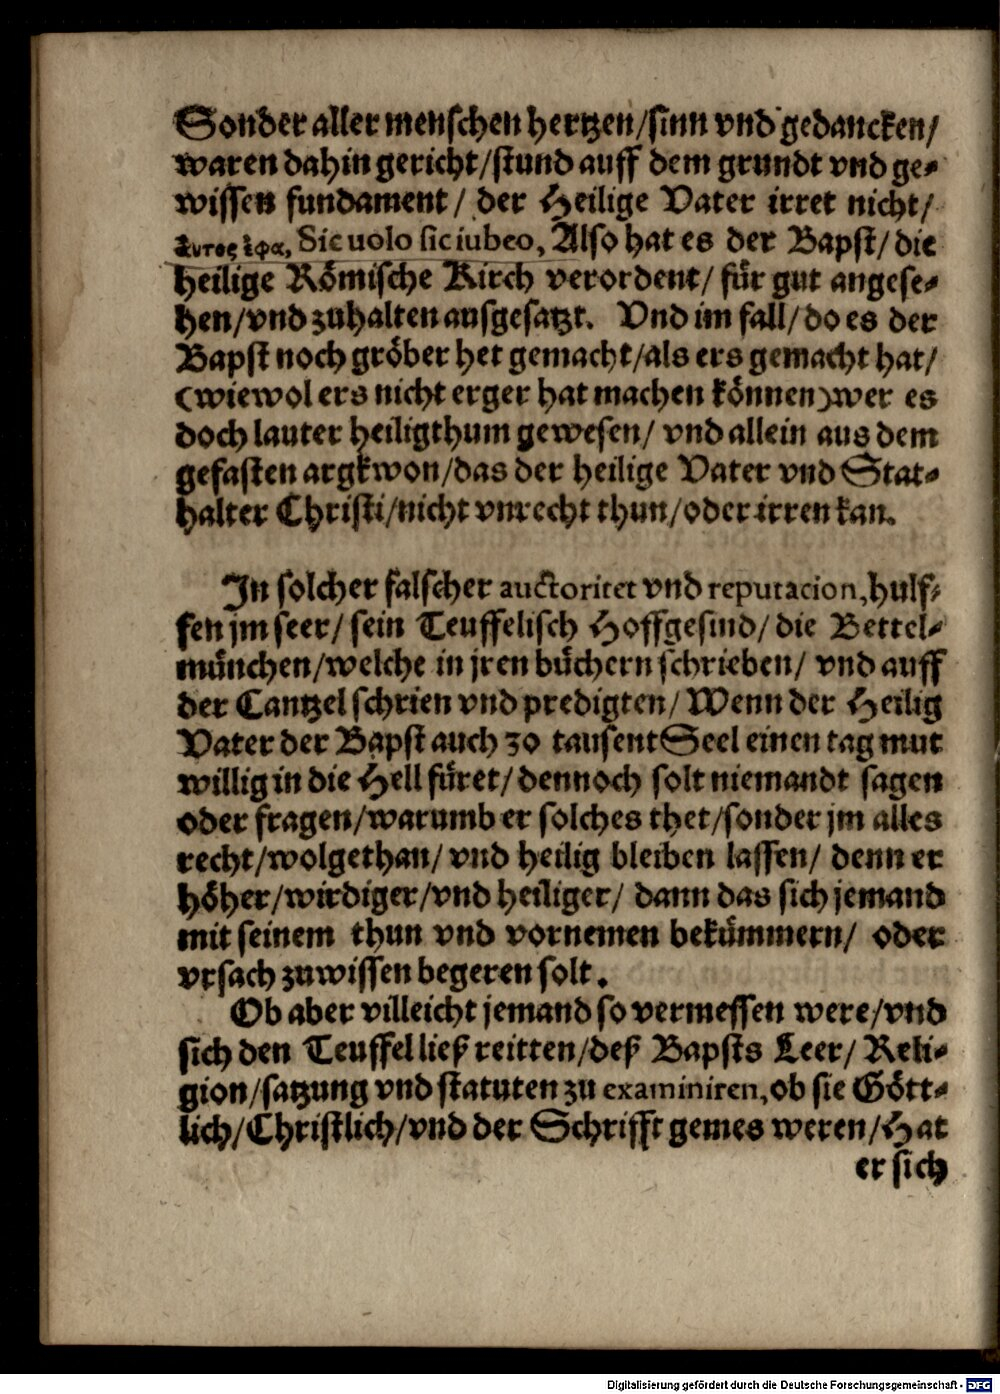 Sonder aller menschen hertzen/sinn vnd gedancken/
waren dahin gericht/stund auff dem grundt vnd ge-
wissen fundament/ der Heilige Vater irret nicht/
ἀυτος ἐφα, Sic uolo sic iubeo, Also hat es der Bapst/ die
heilige Römische Kirch verordent/ für gut angese-
hen/vnd zuhalten ausgesatzt. Vnd im fall/ do es der
Bapst noch gröber het gemacht/als ers gemacht hat/
(wiewol ers nicht erger hat machen können) wer es
doch lauter heiligthum gewesen/ vnd allein aus dem
gefasten argkwon/das der heilige Vater vnd Stat-
halter Christi/nicht vnrecht thun/oder irren kan.
In solcher falscher auctoritet vnd reputacion, hulf-
fen jm seer/ sein Teuffelisch Hoffgesind/ die Bettel-
münchen/welche in jren büchern schrieben/ vnd auff
der Cantzel schrien vnd predigten/ Wenn der Heilig
Vater der Bapst auch 30 tausent Seel einen tag mut
willig in die Hell füret/ dennoch solt niemandt sagen
oder fragen/warumb er solches thet/sonder jm alles
recht/wolgethan/ vnd heilig bleiben lassen/ denn er
höher/wirdiger/vnd heiliger/ dann das sich jemand
mit seinem thun vnd vornemen bekümmern/ oder
vrsach zuwissen begeren solt.
Ob aber villeicht jemand so vermessen were/vnd
sich den Teuffel ließ reitten/deß Bapsts Leer/ Reli-
gion/satzung vnd statuten zu examiniren, ob sie Gött-
lich/Christlich/vnd der Schrifft gemes weren/Hat
er sich
Digitalisierung gefördert durch die Deutsche Forschungsgemeinschaft - DFG